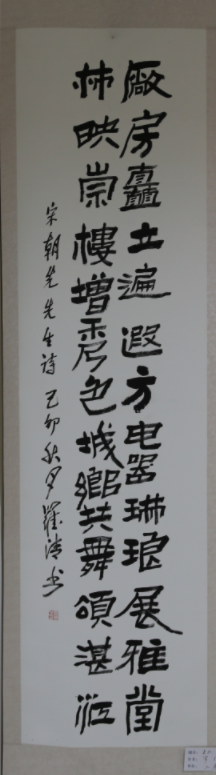 廠房矗立遍遐方电器琳琅展雅堂
林映崇樓增秀色城鄉共舞頌湛江
宋朝先生诗己卯秋月羅书